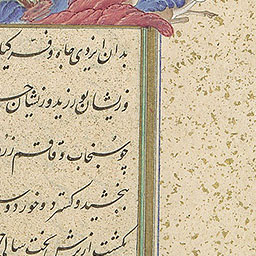 بدان ایزدی جاه و فر کیی
ز نیشان بورزید و زیشان
چو سنجاب و قاقم
ببخشید و گسترد و خورد و
بگشت از برش بخت سالی